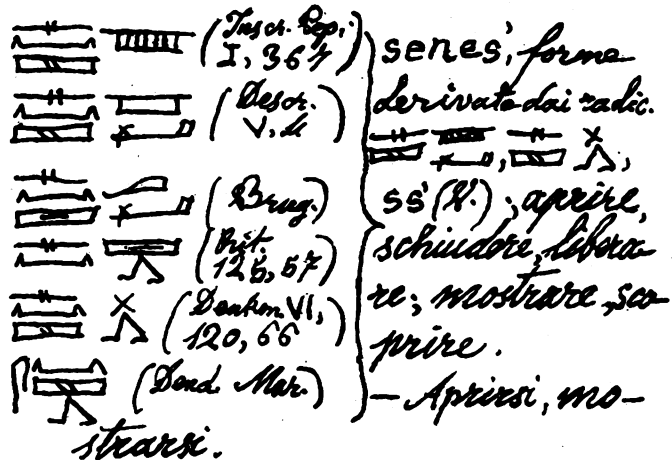 (Inscr.
I, 367)
(Descr.
V, 4)
(Brug.)
(Rit.
125, 57)
(Denkm VI,
120, 66)
(Dend. Mar.)
senes', forme
derivate dai radic.
ss' (V.); aprire,
schiudere, libera-
re; mostrare, sco-
prire.
— Aprirsi, mo-
strarsi.